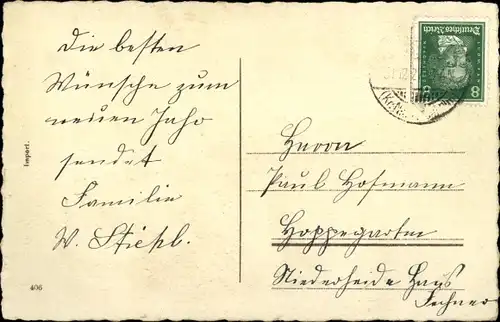 Die besten
Wünsche zum
neuen Jahr
sendet
Familie
W. Stiehl.
Import.
406
Deutsches Reich
8 8
31.12.2
Herrn
Paul Hofmann
Hoppegarten
Niederheide Haus
Fechner